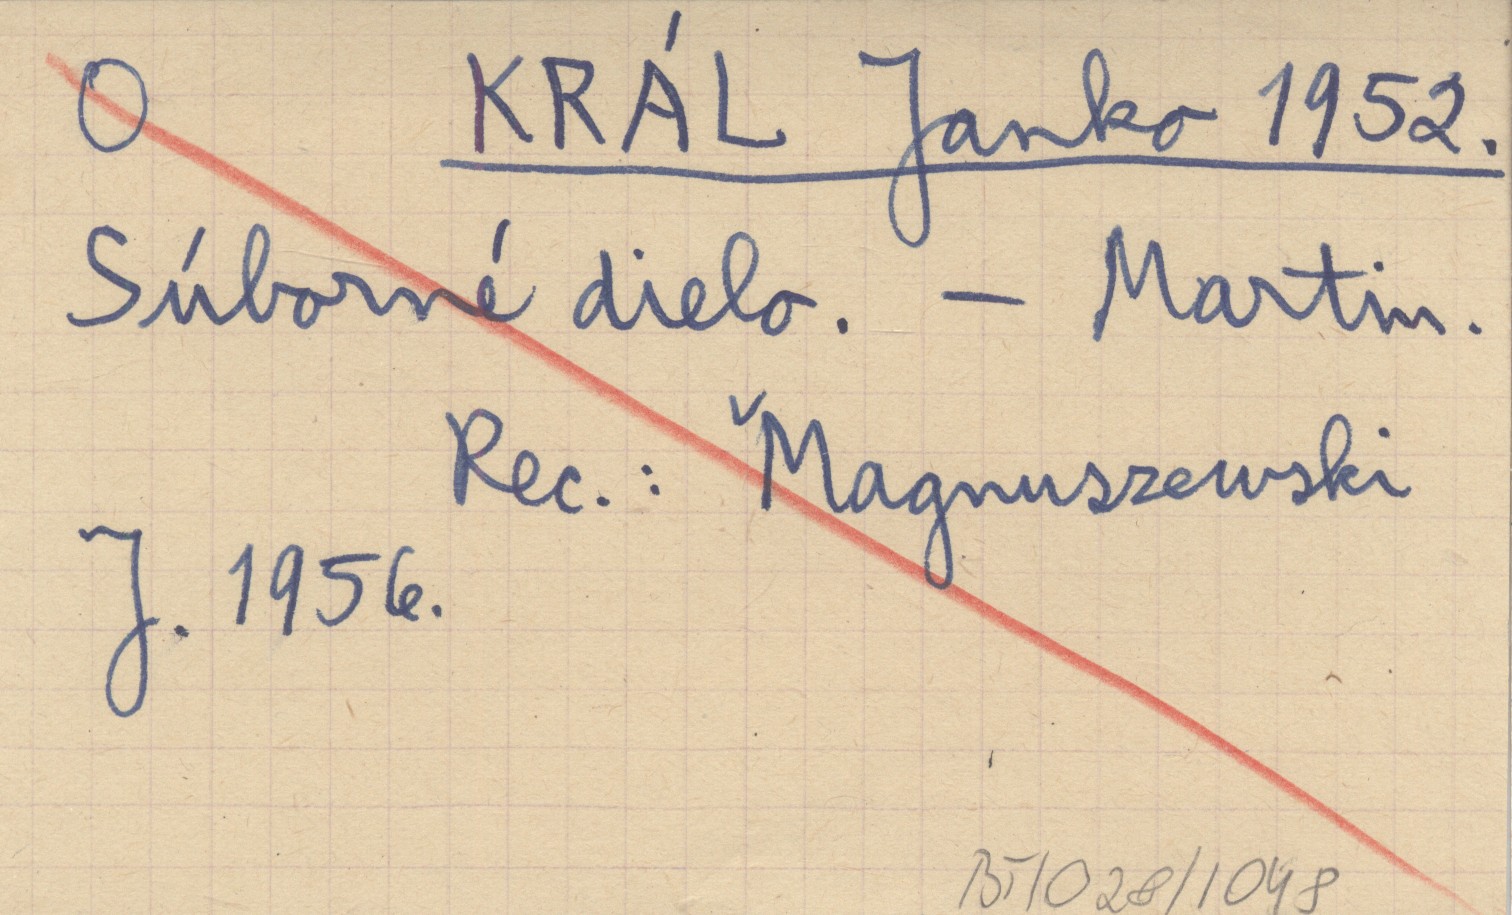 O KRÁL Janko 1952.
Súborné dielo. – Martin.
Rec.: Magnuszewski
J. 1956.
BT/028/1048